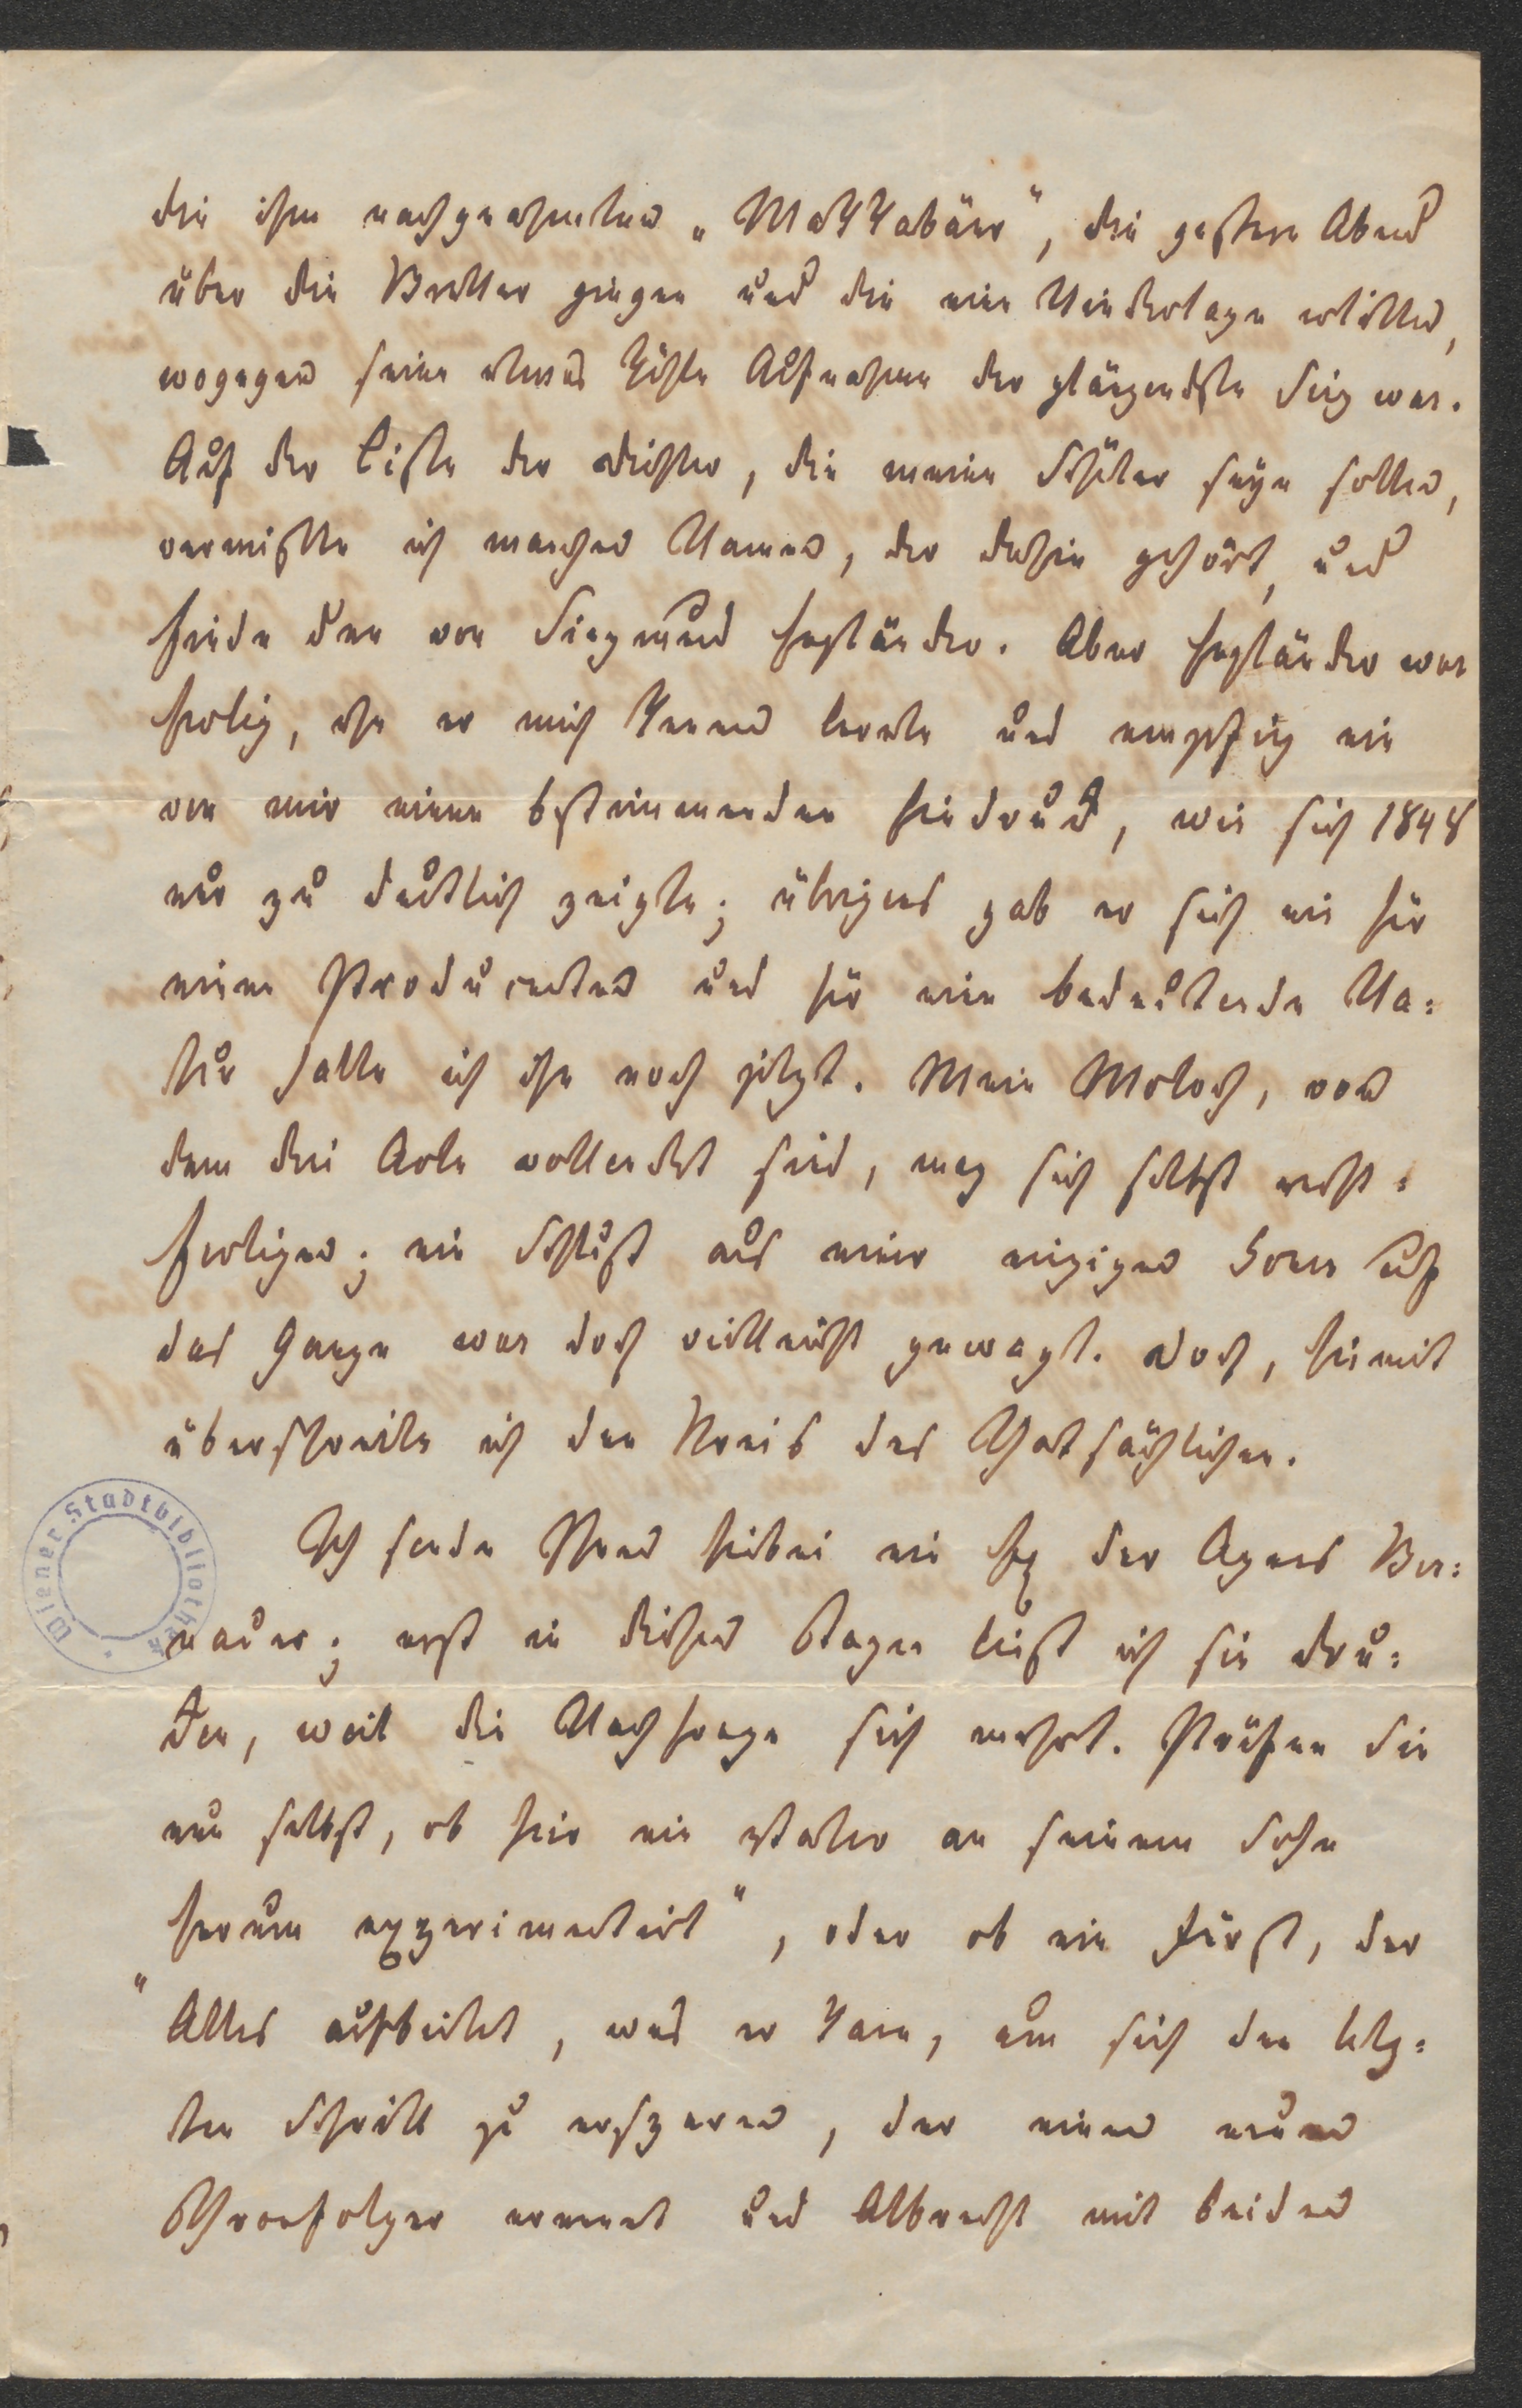 die ihm nachgeahmten „Makkabäer“, die gestern Abend
über die Bretter gingen und die eine Niederlage erlitten,
wogegen seine etwas kühle Aufnahme der glänzendste Sieg war.
Auf der Liste der Dichter, die meine Schüler seyn sollen,
vermißte ich manchen Namen, der dahin gehört, und
finde den von Siegmund Engländer. Aber Engländer war
fertig, ehe er mich kennen lernte und empfing nie
von mir einen bestimmenden Eindruck, wie sich 1848
nur zu deutlich zeigte; übrigens gab er sich nie für
einen Producenten und für eine bedeutende Na=
tur halte ich ihn noch jetzt. Mein Moloch, von
dem drei Acte vollendet sind, mag sich selbst recht=
fertigen; ein Schluß aus einer einzigen Scene auf
das Ganze war doch vielleicht gewagt. Doch, hiemit
überschreite ich den Kreis des Thatsächlichen.
Ich sende Ihnen hiebei ein Ex der Agnes Ber=
nauer; erst in diesen Tagen ließ ich sie dru=
cken, weil die Nachfrage sich mehrt. Prüfen Sie
nun selbst, ob hier ein Vater an seinem Sohn
herum experimentirt“, oder ob ein Fürst, der
„Alles aufbietet, was er kann, um sich den letz=
ten Schritt zu ersparen, der einen neuen
Thronfolger ernennt und Albrecht mit beiden
Wiener Stadtbibliothek